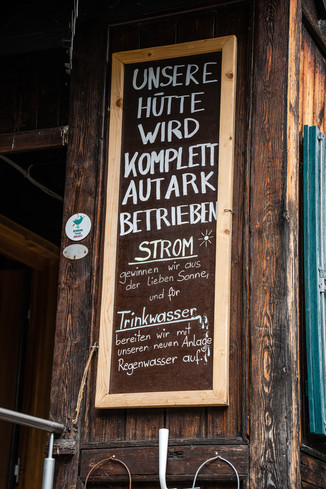 UNSERE
HÜTTE
WIRD
KOMPLETT
AUTARK
BETRIEBEN
STROM
gewinnen wir aus
der lieben Sonne,
und für
Trinkwasser
bereiten wir mit
unseren neuen Anlage
Regenwasser auf.